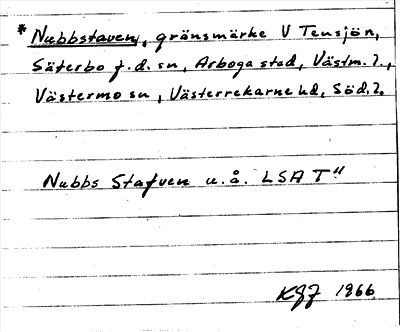 * Nubbstaven, gränsmärke V Tensjön,
Säterbo f.d. sn, Arboga stad, Västm. l.,
Västermo sn, Västerrekarne hd, Söd. l.
Nubbs Stafven u.å. LSA T"
KGJ 1966